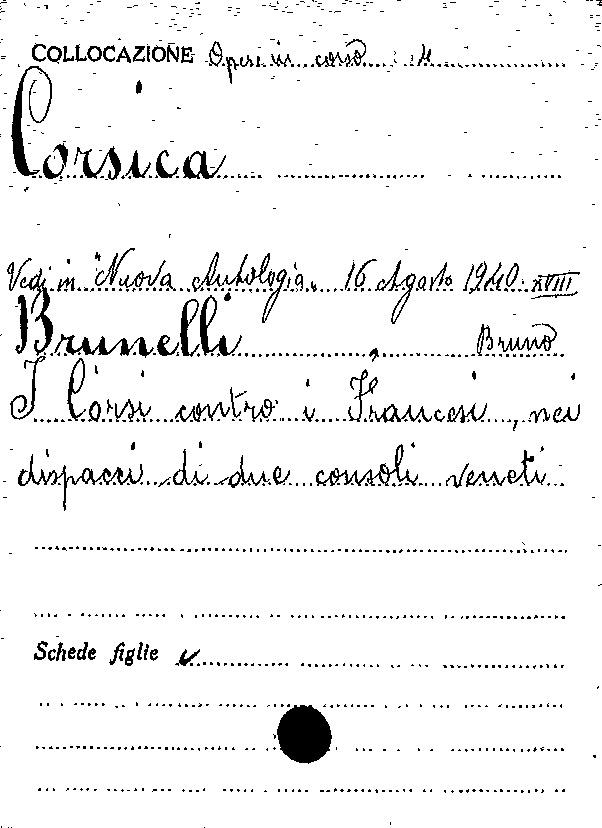 COLLOCAZIONE Opere in corso : 4
Corsica
Vedi in "Nuova Antologia" 16 Agosto 1940. XVIII
Brunelli, Bruno
I Corsi contro i Francesi, nei
dispacci di due consoli veneti
Schede figlie